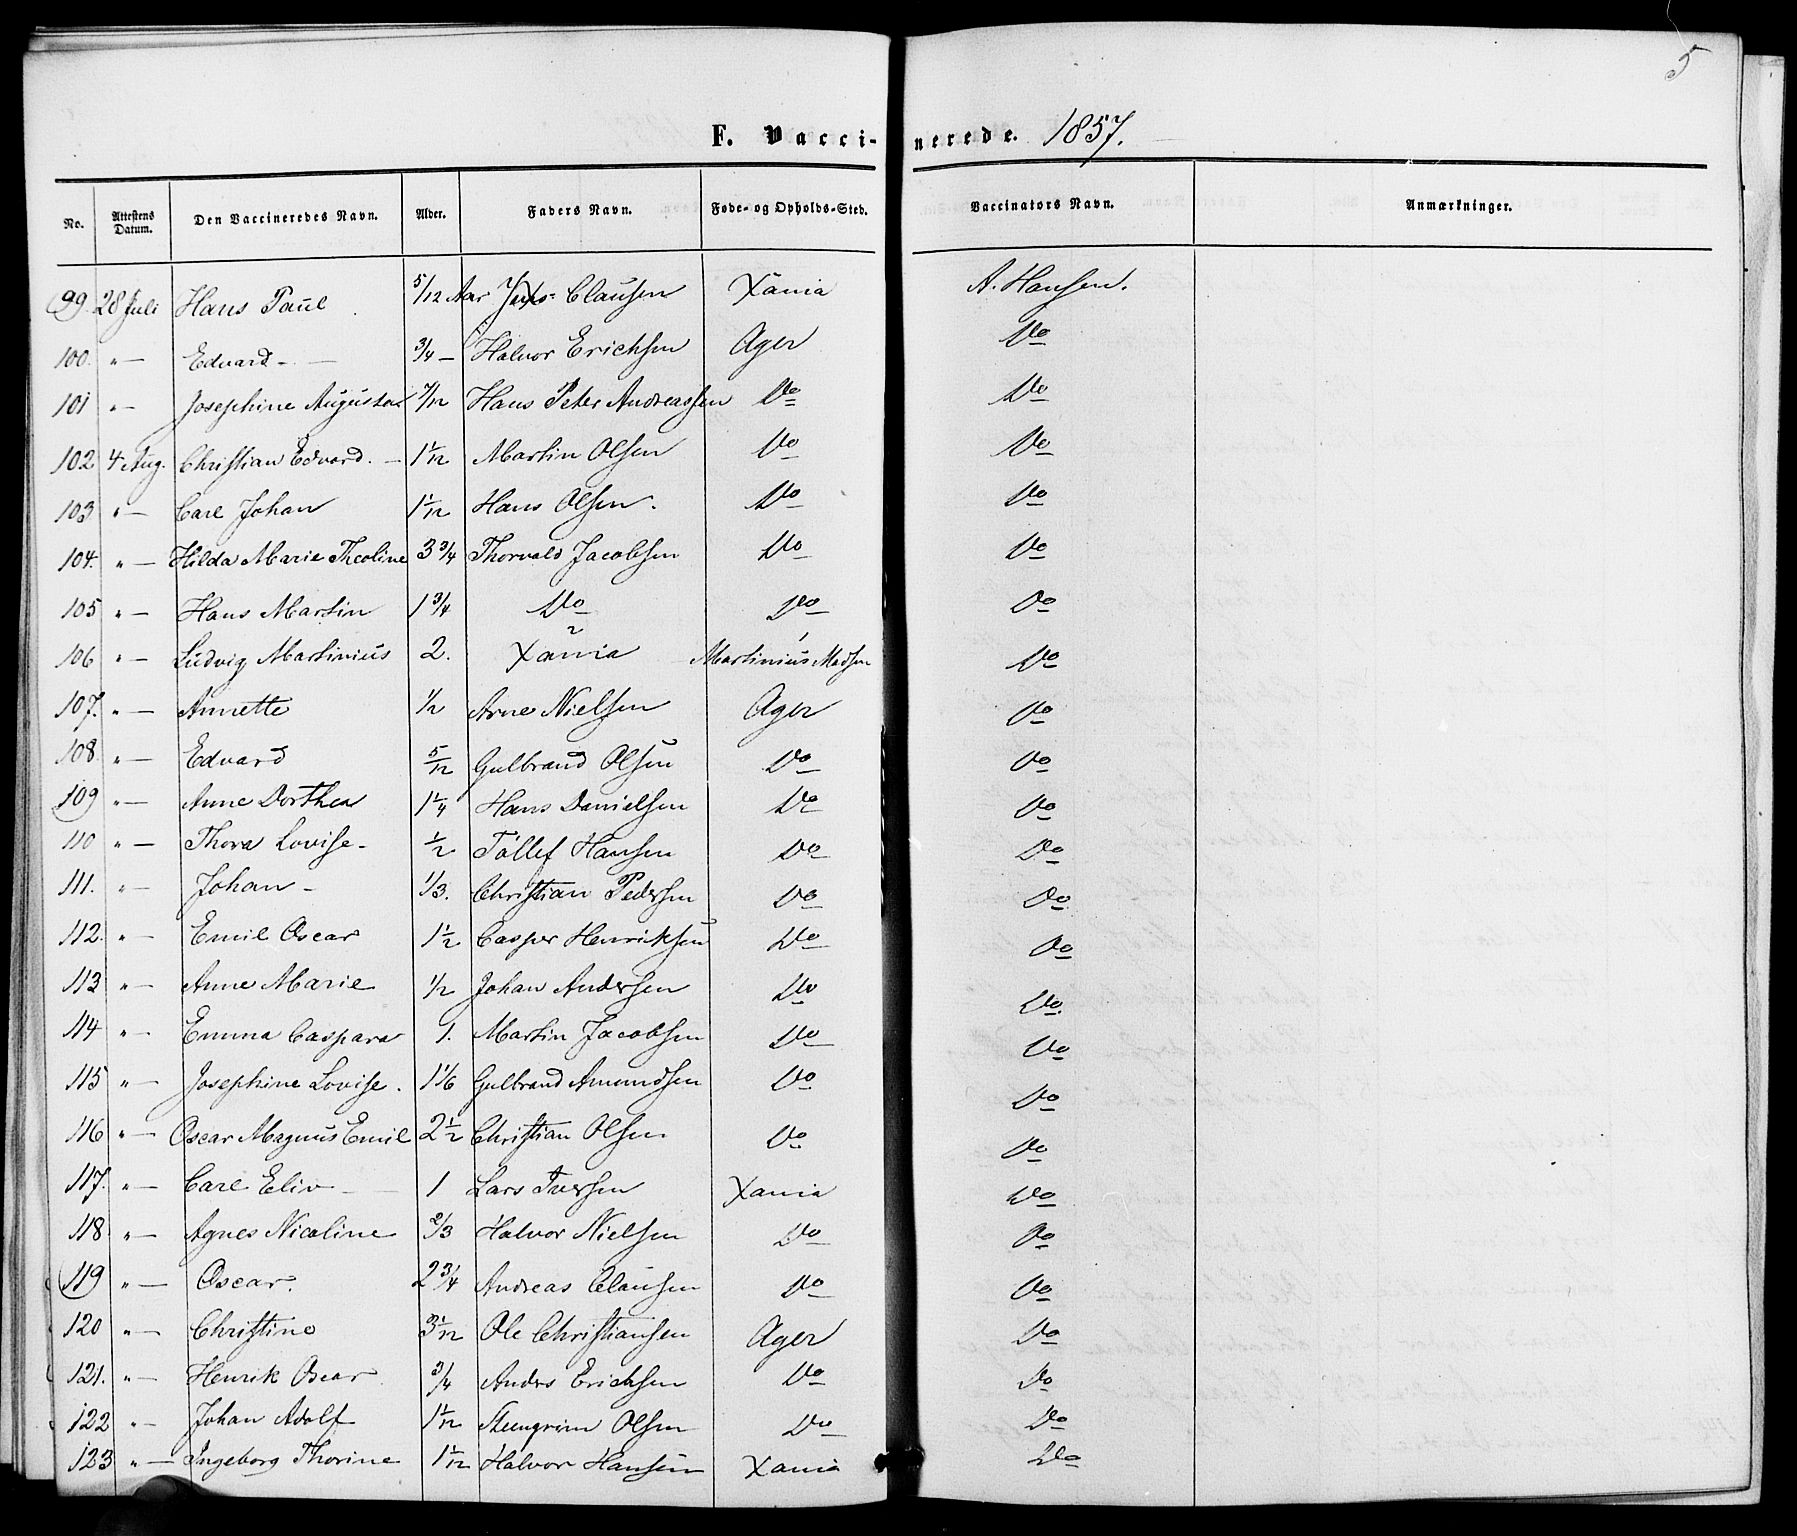 5
F. Vaccinerede. 1857.
No. | Attestens Datum. | Den Vaccineredes Navn. | Alder. | Faders Navn. | Føde- og Opholds-Sted. | Vaccinators Navn. | Anmærkninger.
99. | 28 Juli | Hans Paul | 5/12 Aar | Clausen | Xania | A. Hansen.
100. | " — | Edvard - — | 3/4 — | Halvor Erichsen | Ager | Do
101 | " — | Josephine Augusta | 7/12 | Hans Peter Andreassen | Do | Do
102 | 4 Aug. | Christian Edvard. — | 1 1/12 | Martin Olsen | Do | Do
103 | " — | Carl Johan | 1 1/12 | Hans Olsen. | Do | Do
104. | " — | Hilda Marie Theoline | 3 3/4 | Thorvald Jacobsen | Do | Do
105 | " — | Hans Martin | 1 3/4 | Do | Do | Do
106 | " — | Ludvig Martinius | 2. | 2 Xania | 1 Martinius Madsen | Do
107. | " — | Annette | 1/2 | Arne Nielsen | Ager | Do
108. | " — | Edvard | 5/12 | Gulbrand Olsen | Do | Do
109 | " — | Anne Dorthea | 1 1/4 | Hans Danielsen | Do | Do
110 | " — | Thora Lovise - | 1/2 | Tollef Hansen | Do | Do
111. | " — | Johan - | 1/3. | Christian Pedersen | Do | Do
112. | " — | Emil Oscar | 1 1/2 | Casper Henriksen | Do | Do
113 | " — | Anne Marie | 1/2 | Johan Andersen | Do | Do.
114 | " — | Emma Caspara | 1. | Martin Jacobsen | Do | Do
115 | " — | Josephine Lovise. | 1 1/6 | Gulbrand Amundsen | Do | Do
116 | " — | Oscar Magnus Emil | 2 1/2 | Christian Olsen | Do | Do
117. | " — | Carl Eliv — | 1 | Lars Iversen | Xania | Do
118. | " — | Agnes Nicoline | 2/3 | Halvor Nielsen | Do | Do
119 | " — | Oscar. | 2 3/4 | Andreas Clausen | Do | Do
120 | " — | Christine | 3 1/12 | Ole Christiansen | Ager | Do
121. | " — | Henrik Oscar | 3/4 | Anders Erichsen | Do | Do
122 | " — | Johan Adolf | 1 1/12 | Steengrim Olsen | Do | Do
123 | " — | Ingeborg Thorine | 1 1/12 | Halvor Hansen | Xania | Do